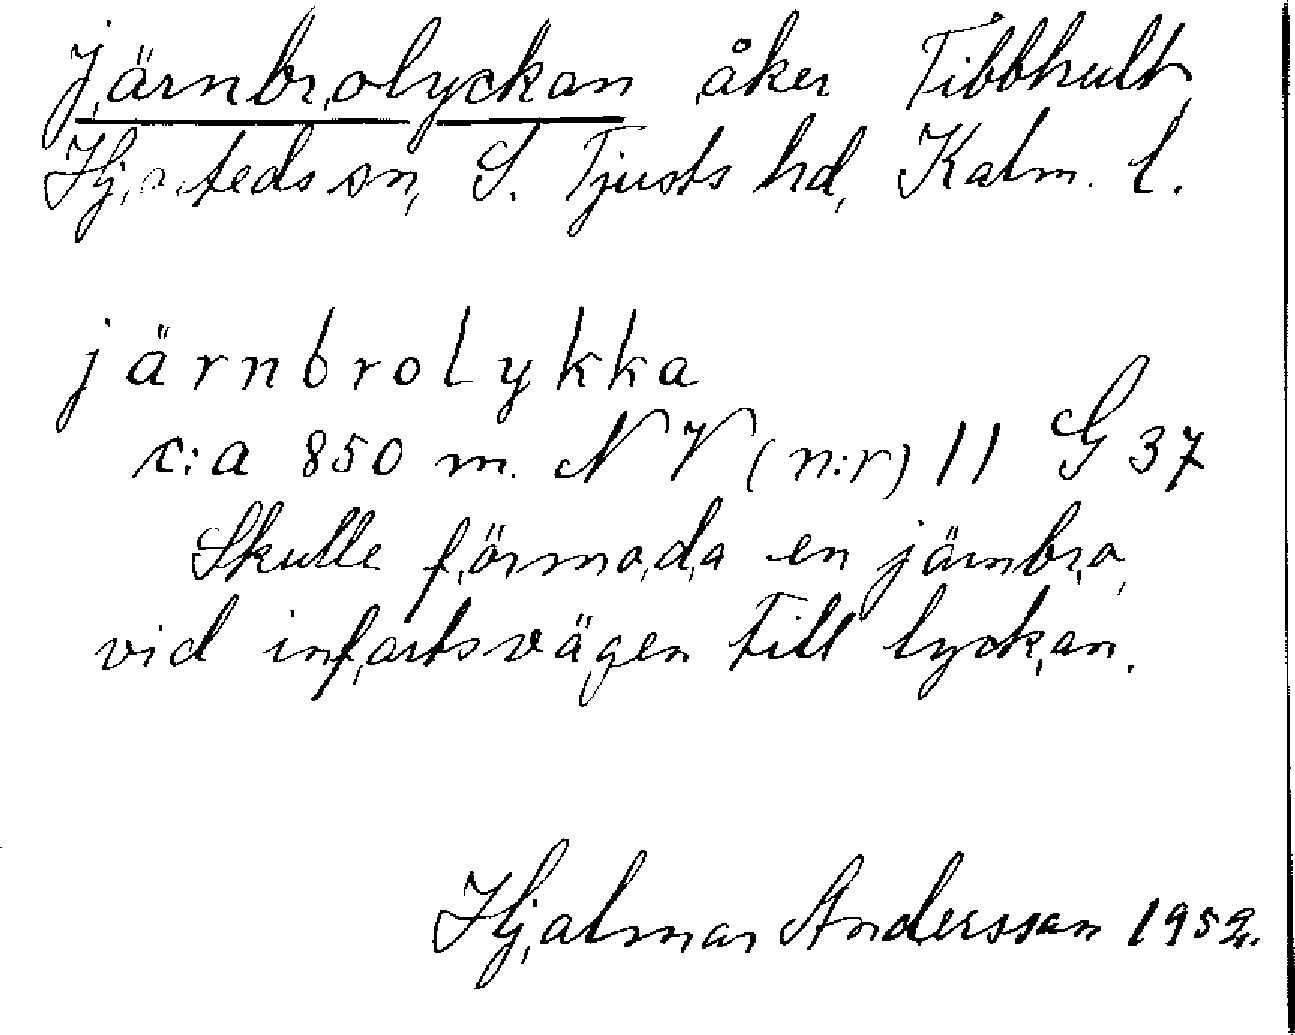 Järnbrolyckan åker Tibbhult,
Hjorteds sn, S. Tjusts hd, Kalm. l.
järnbrolykka
c:a 850 m. NV (n:r) 11 G 37
Skulle förmoda en järnbro,
vid infartsvägen till lyckan.
Hjalmar Andersson 1952.